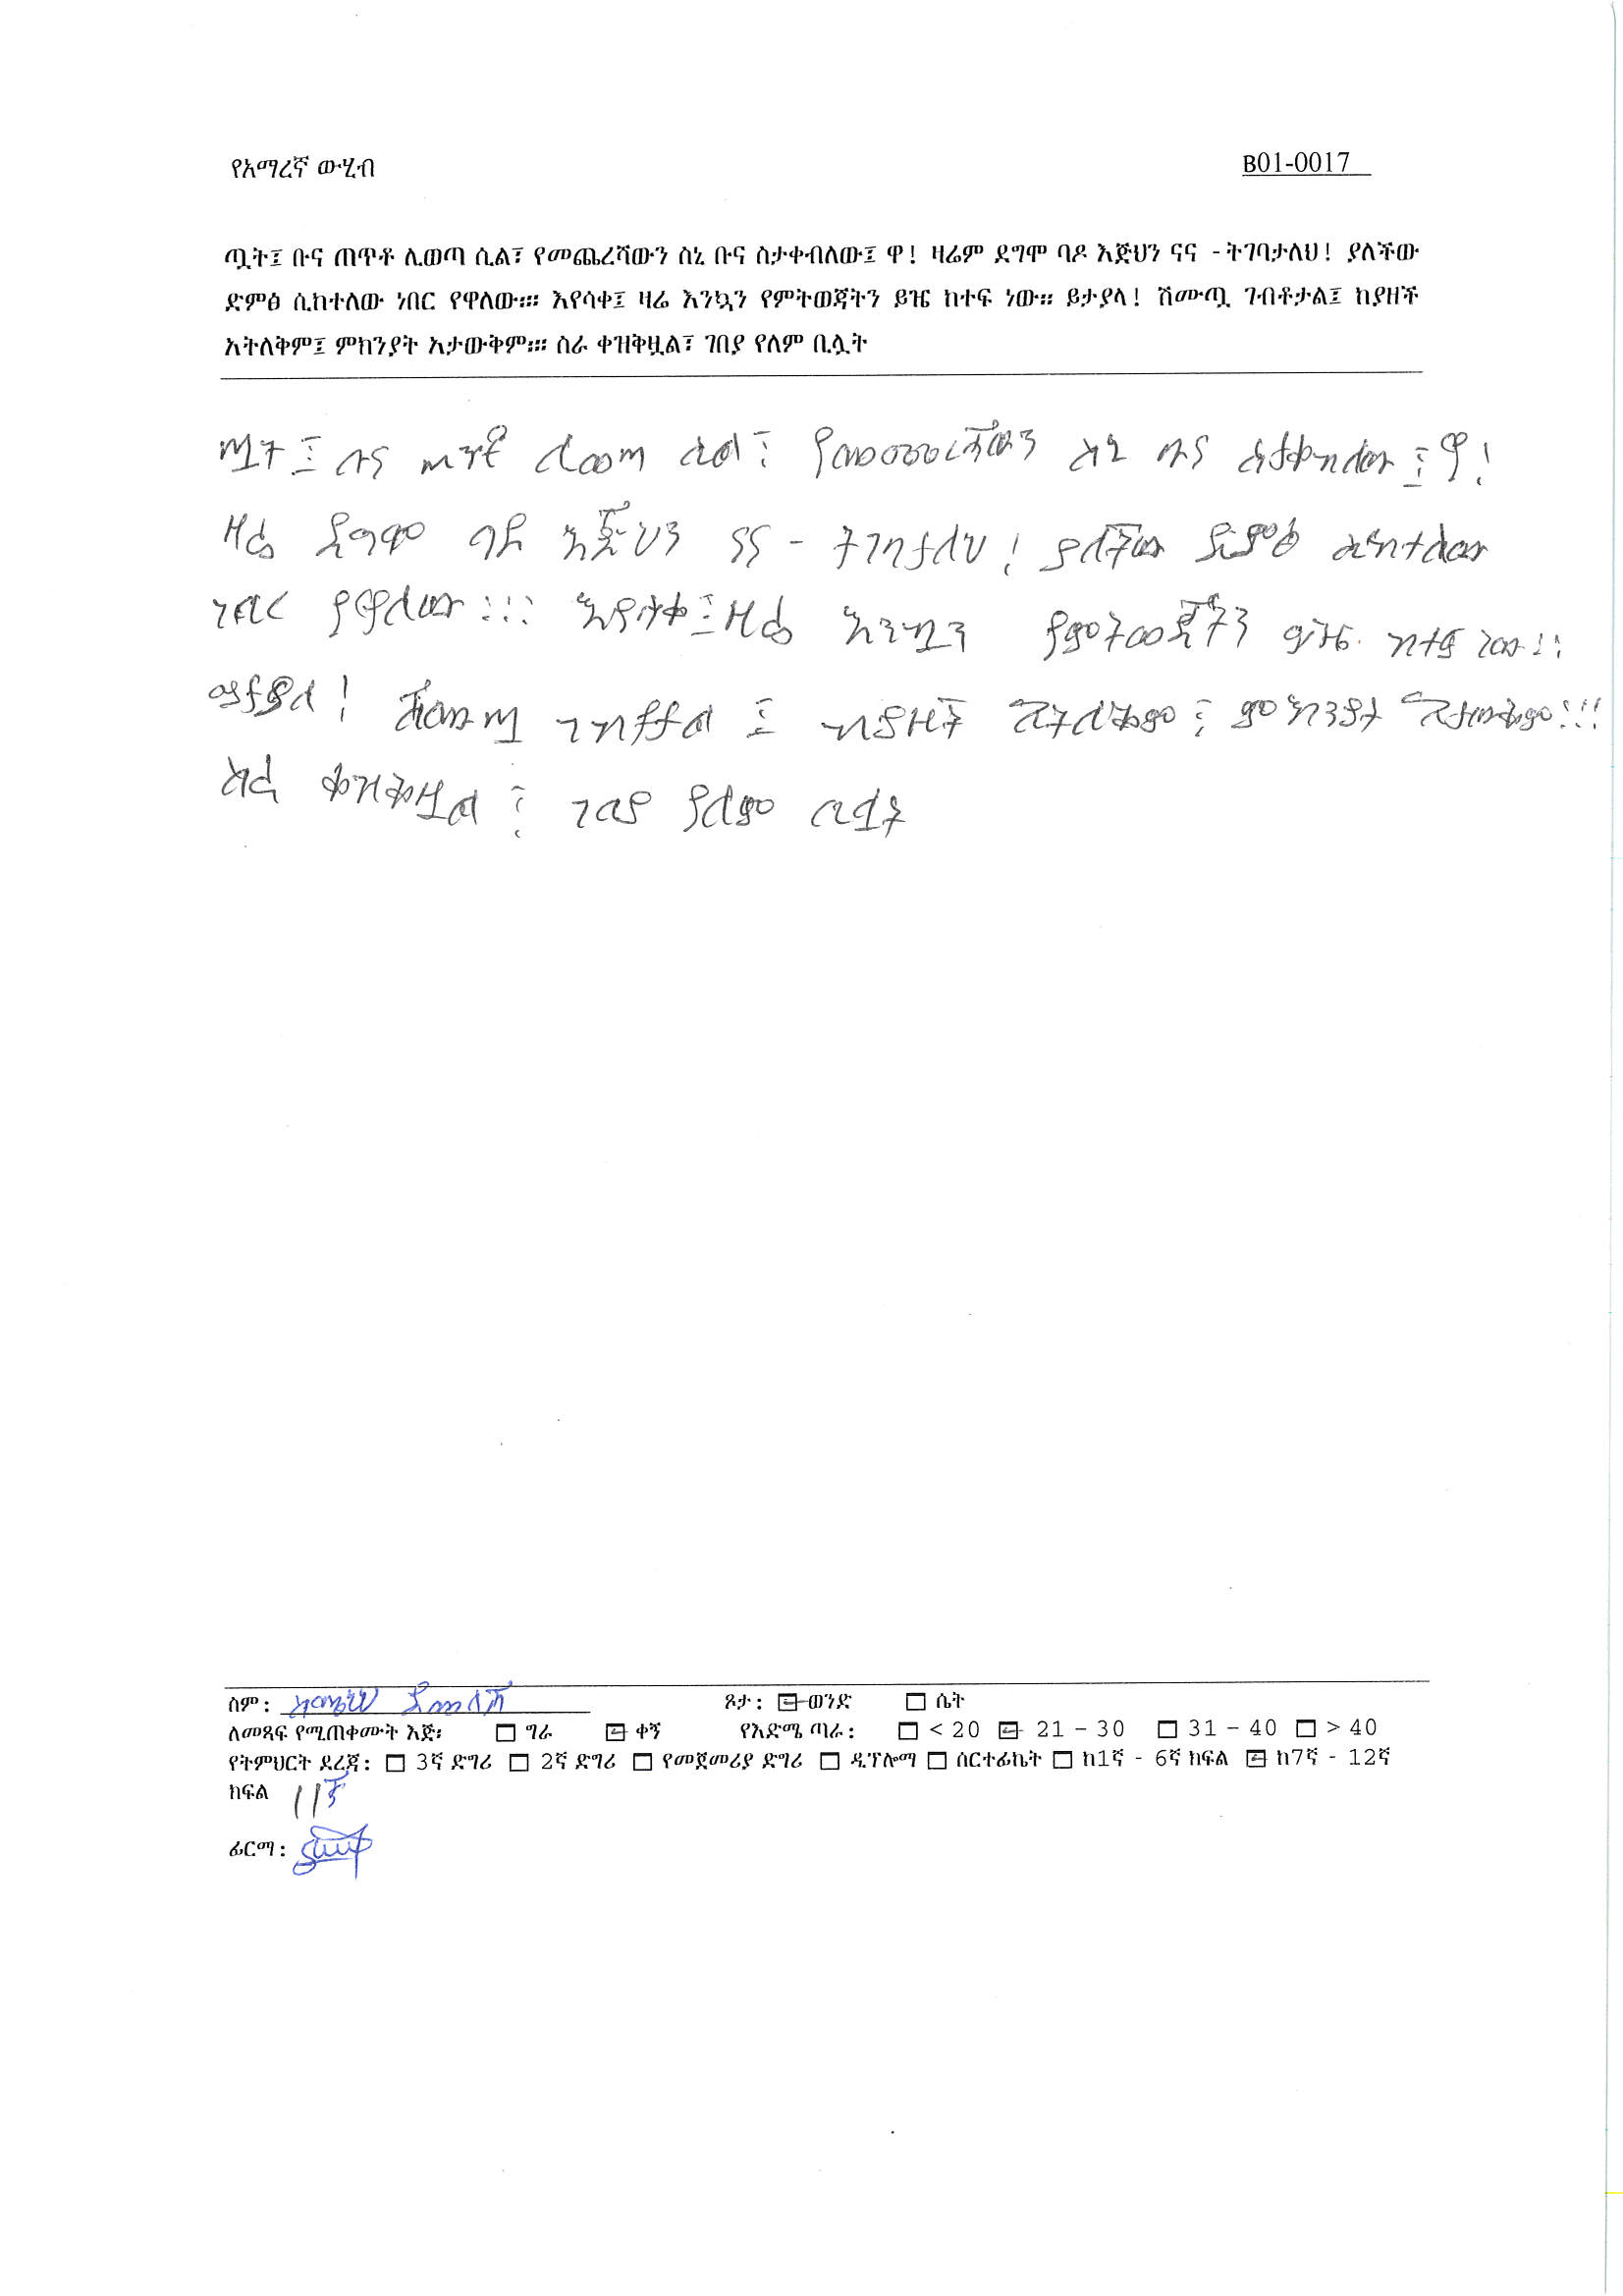 የአማረኛ ውሂብ B01-0017
ጧት፤ ቡና ጠጥቶ ሊወጣ ሲል፣ የመጨረሻውን ስኒ ቡና ስታቀብለው፤ ዋ! ዛሬም ደግሞ ባዶ እጅህን ናና - ትገባታለህ! ያለችው
ድምፅ ሲከተለው ነበር የዋለው፡፡፡ እየሳቀ፤ ዛሬ እንኳን የምትወጃትን ይዤ ከተፍ ነው፡፡ ይታያላ! ሽሙጧ ገብቶታል፤ ከያዘች
አትለቅም፤ ምክንያት አታውቅም፡፡፡ ስራ ቀዝቅዟል፣ ገበያ የለም ቢሏት
ጧት፤ ቡና ጠጥቶ ሊወጣ ሲል፣ የመጨረሻውን ስኒ ቡና ስታቀብለው፤ ዋ!
ዛሬ ደግሞ ባዶ እጅህን ናና - ትገባታለህ! ያለችው ድምፅ ሲከተለው
ነበር የዋለው፡፡፡ እየሳቀ፤ ዛሬ እንኳን የምትወጃትን ይዤ ከተፍ ነው፡፡
ይታያላ! ሽሙጧ ገብቶታል፤ ከያዘች አትለቅም፤ ምክንያት አታውቅም፡፡፡
ስራ ቀዝቅዟል፣ ገበያ የለም ቢሏት
ስም: ጾታ: ወንድ ሴት
ለመጻፍ የሚጠቀሙት እጅ፡ ግራ ቀኝ የእድሜ ጣራ: < 20 21 – 30 31 – 40 > 40
የትምህርት ደረጃ: 3ኛ ድግሪ 2ኛ ድግሪ የመጀመሪያ ድግሪ ዲፕሎማ ሰርተፊኬት ከ1ኛ - 6ኛ ክፍል ከ7ኛ - 12ኛ
ክፍል 11ኛ
ፊርማ: